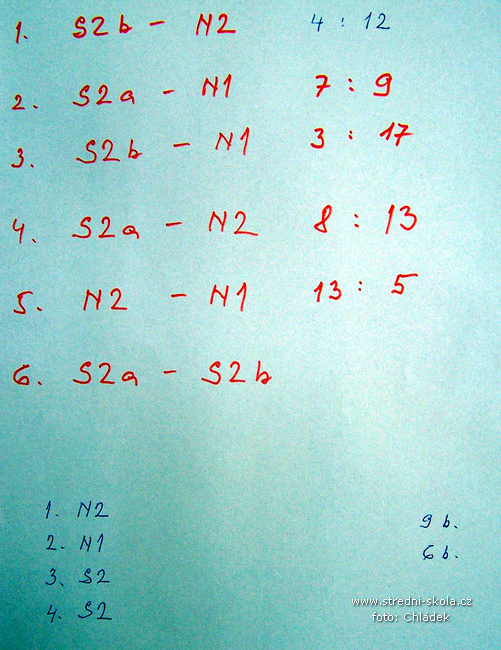 1. S2b - N2 4 : 12
2. S2a - N1 7 : 9
3. S2b - N1 3 : 17
4. S2a - N2 8 : 13
5. N2 - N1 13 : 5
6. S2a - S2b
1. N2 9 b.
2. N1 6 b.
3. S2
4. S2
www.stredni-skola.cz
foto: Chládek